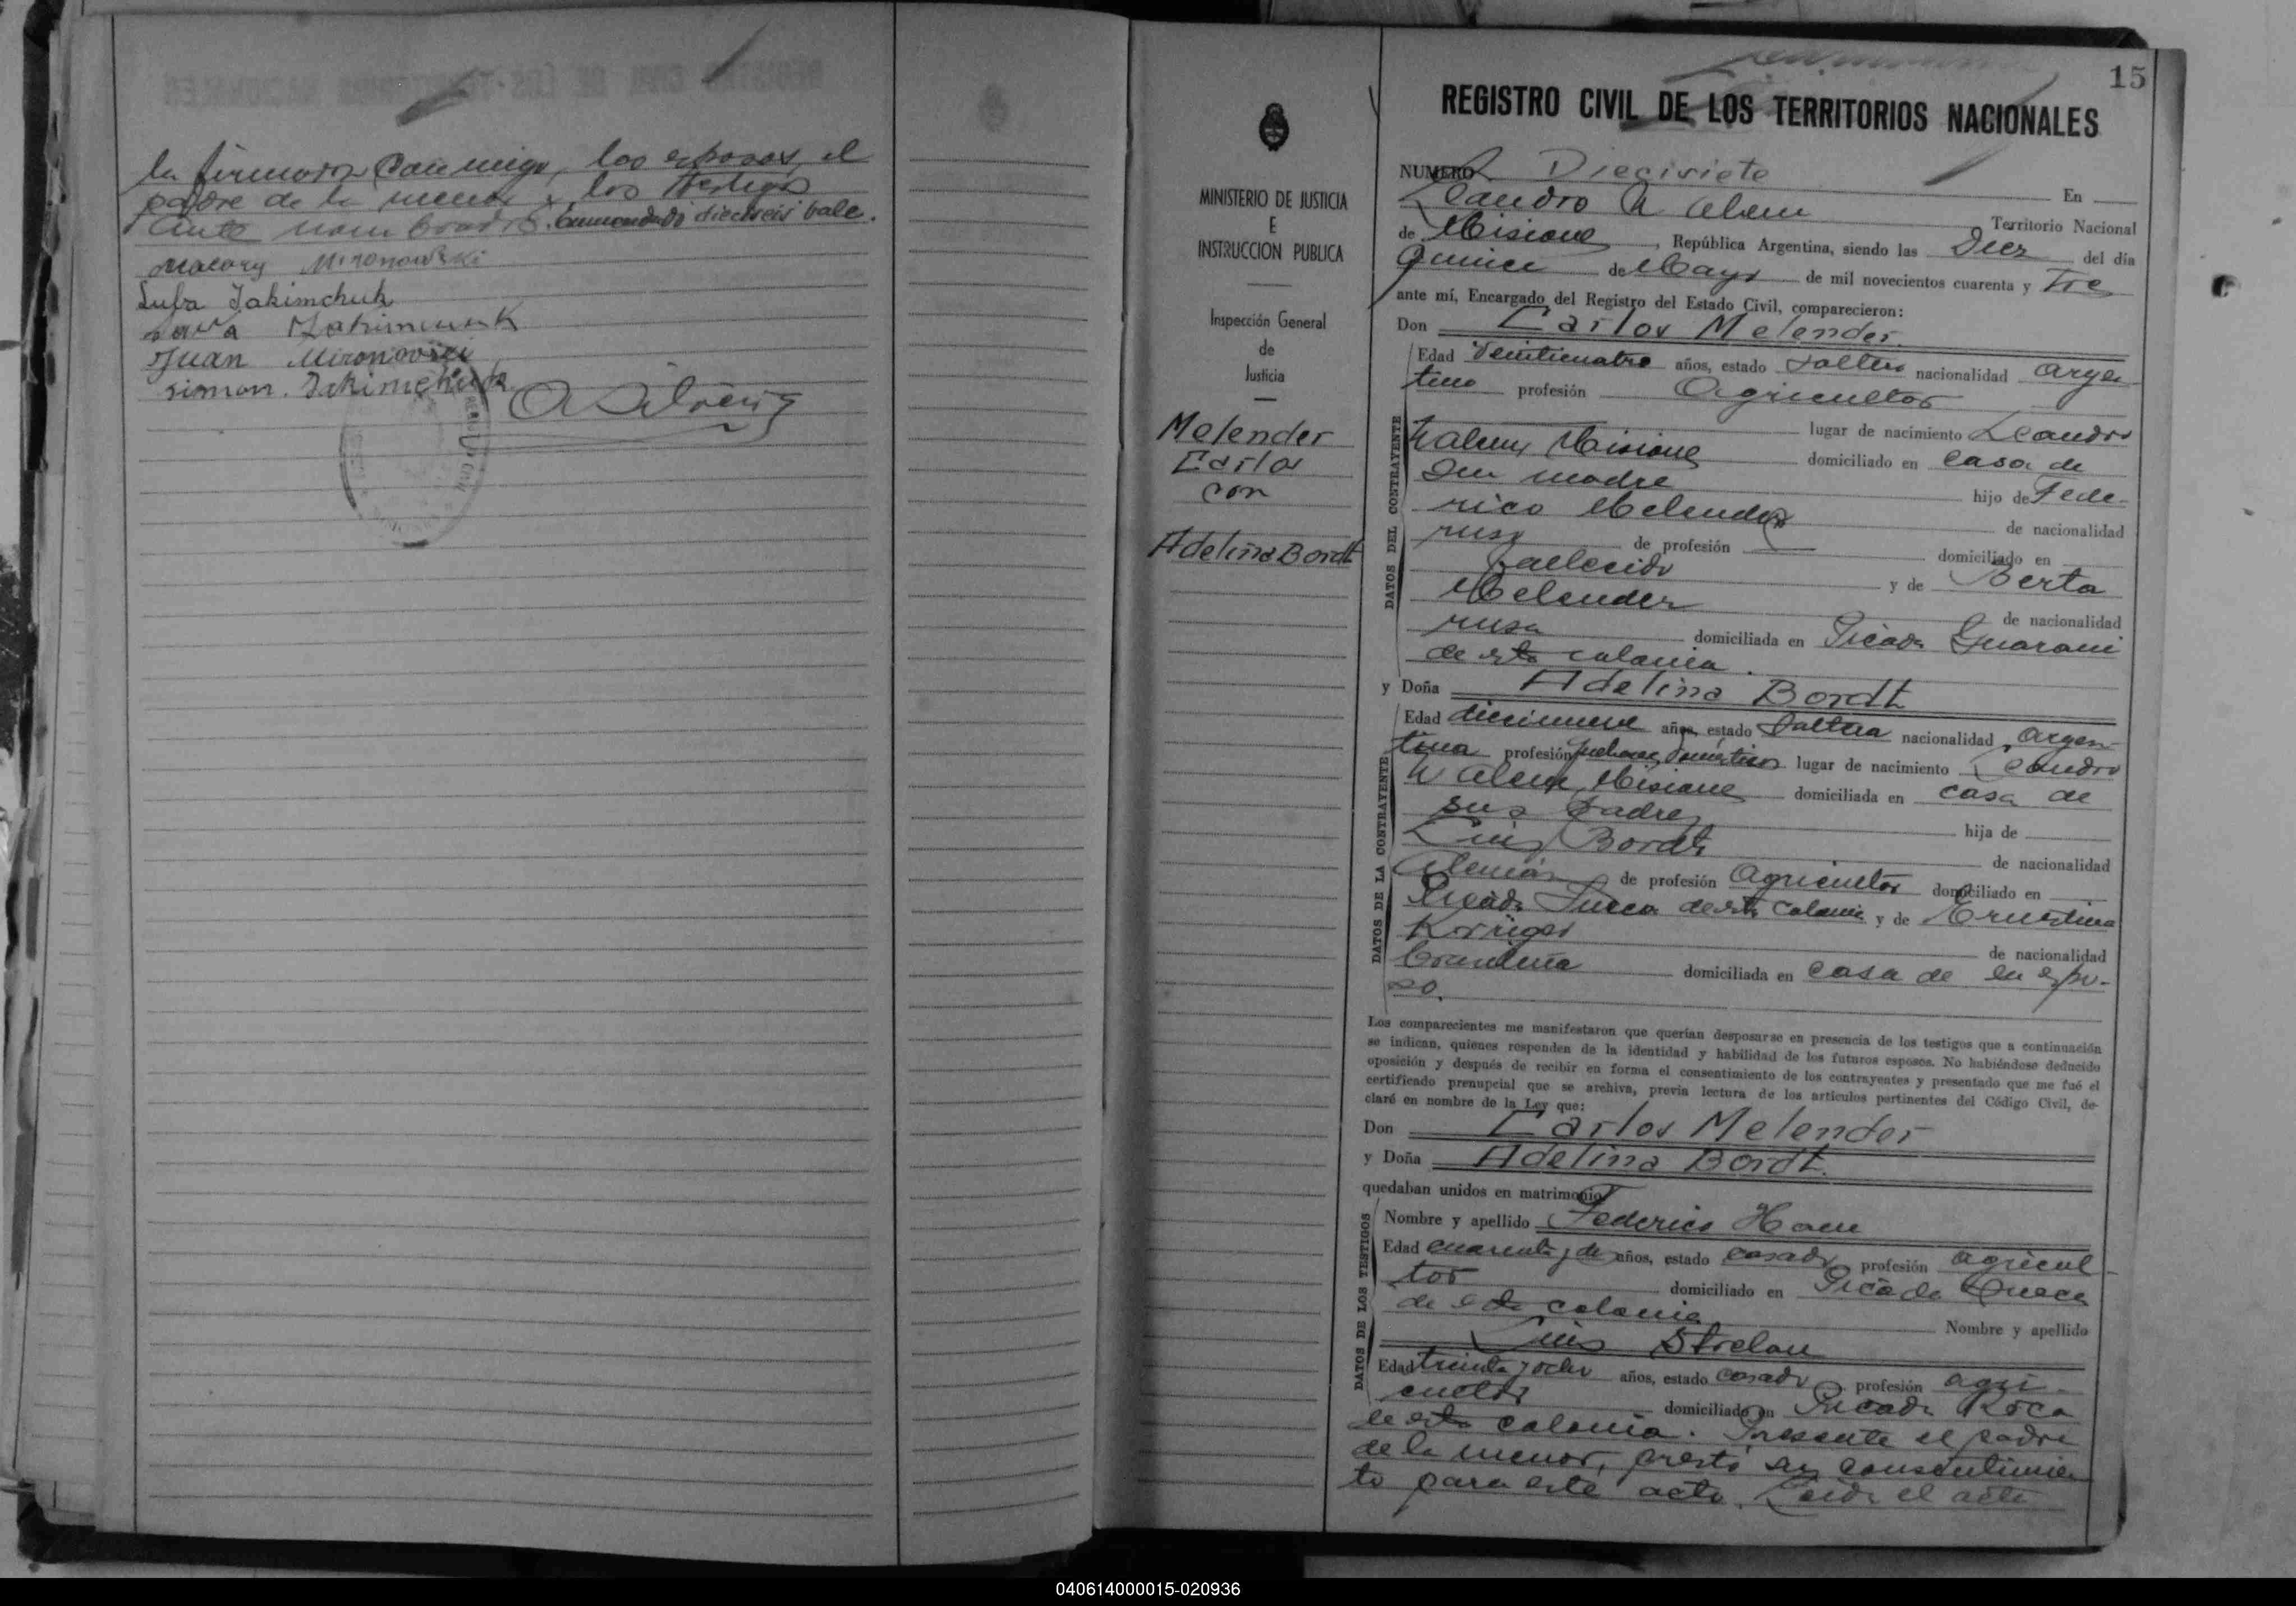 la firmaron conmigo, los esposos, el
padre de la menor y los testigos
ante nombrados. Enmendado dieciseis vale.
Mironowski
Luba Jakimchuk
Juan Mironoviki
Simon. Jakimchuk
15
REGISTRO CIVIL DE LOS TERRITORIOS NACIONALES
MINISTERIO DE JUSTICIA
E
INSTRUCCION PUBLICA
Inspección General
de
Justicia
Melender
Carlos
con
Adelina Bordt
NUMERO Diecisiete
Leandro N Alem En
Territorio Nacional
de Misiones, República Argentina, siendo las Diez del día
quince de Mayo de mil novecientos cuarenta y Tres
ante mí, Encargado del Registro del Estado Civil, comparecieron:
Don Carlos Melender.
Edad Veinticuatro años, estado soltero nacionalidad argen-
tino profesión Agricultor
lugar de nacimiento Leandro
N alem Misiones domiciliado en casa de
su madre hijo de Fede-
rico Melender de nacionalidad
ruso de profesión — domiciliado en
fallecido y de Berta
Melender de nacionalidad
rusa domiciliada en Picada Guarani
de esta colonia.
DATOS DEL CONTRAYENTE
y Doña Adelina Bordt
Edad diecinueve años, estado Soltera nacionalidad argen-
tina profesión quehaceres domésticos lugar de nacimiento Leandro
N Alem, Misiones domiciliada en casa de
sus padres hija de
Luis Bordt de nacionalidad
Alemán de profesión Agricultor domiciliado en
Picada Sueca de esta Colonia y de Ernestina
Krüger de nacionalidad
brasileña domiciliada en casa de su espo-
so.
DATOS DE LA CONTRAYENTE
Los comparecientes me manifestaron que querían desposarse en presencia de los testigos que a continuación
se indican, quienes responden de la identidad y habilidad de los futuros esposos. No habiéndose deducido
oposición y después de recibir en forma el consentimiento de los contrayentes y presentado que me fué el
certificado prenupcial que se archiva, previa lectura de los artículos pertinentes del Código Civil, de-
claré en nombre de la Ley que:
Don Carlos Melender
y Doña Adelina Bordt.
quedaban unidos en matrimonio
Nombre y apellido Federico Ham
Edad cuarenta y dos años, estado casado profesión agricul-
tor domiciliado en Picada Sueca
de esta colonia Nombre y apellido
Luis Strelau
Edad treinta y ocho años, estado casado profesión agri-
cultor domiciliado en Picada Roca
de esta colonia. Presente el padre
de la menor, prestó su consentimien-
to para este acto. Leida el acta
DATOS DE LOS TESTIGOS
040614000015-020936